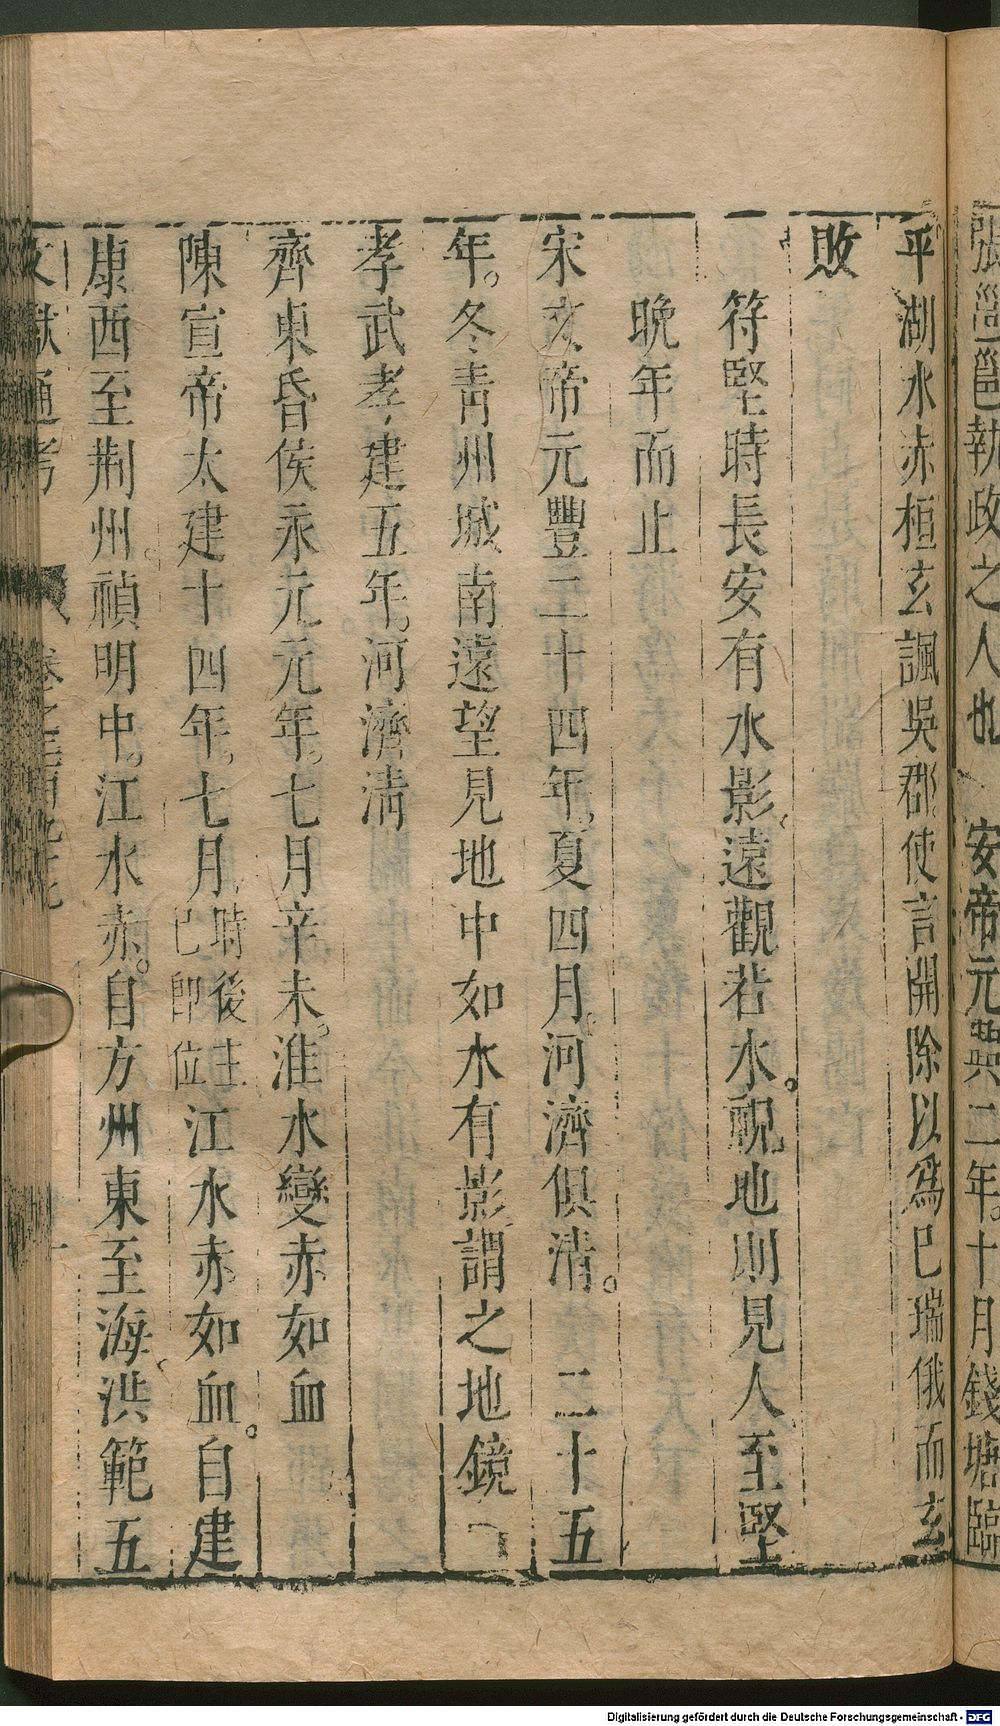 張邕邕執政之人也 安帝元興二年。十月錢塘臨
平湖水赤桓玄諷吳郡使言開除以爲巳瑞俄而玄
敗
符堅時長安有水影遠觀若水。視地則見人至堅
晩年而止
宋文帝元豐二十四年。夏四月。河濟俱清。 二十五
年。冬青州城南遠望見地中如水有影謂之地鏡
孝武孝建五年。河濟清
齊東昏侯永元元年。七月辛未。淮水變赤如血
陳宣帝太建十四年。七月時後主巳卽位江水赤如血。自建
康西至荆州。禎明中。江水赤。自方州東至海洪範五
文獻通考
Digitalisierung gefördert durch die Deutsche Forschungsgemeinschaft - DFG